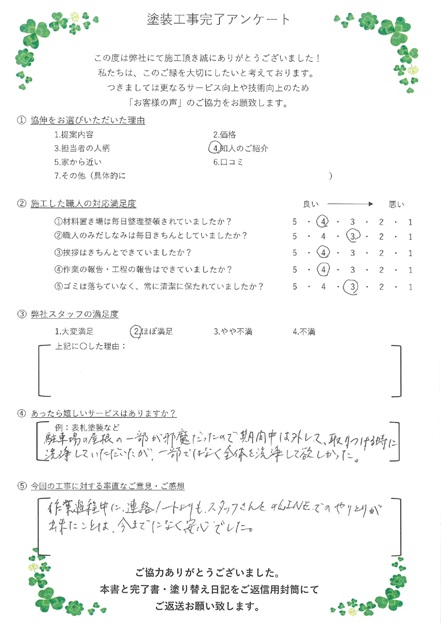 塗装工事完了アンケート
この度は弊社にて施工頂き誠にありがとうございました！
私たちは、このご縁を大切にしたいと考えております。
つきましては更なるサービス向上や技術向上のため
「お客様の声」のご協力をお願致します。
① 協伸をお選びいただいた理由
1.提案内容 2.価格
3.担当者の人柄 4.知人のご紹介
5.家から近い 6.口コミ
7.その他（具体的に ）
② 施工した職人の対応満足度 良い 悪い
①材料置き場は毎日整理整頓されていましたか？ 5 ・ 4 ・ 3 ・ 2 ・ 1
②職人のみだしなみは毎日きちんとしていましたか？ 5 ・ 4 ・ 3 ・ 2 ・ 1
③挨拶はきちんとできていましたか？ 5 ・ 4 ・ 3 ・ 2 ・ 1
④作業の報告・工程の報告はできていましたか？ 5 ・ 4 ・ 3 ・ 2 ・ 1
⑤ゴミは落ちていなく、常に清潔に保たれていましたか？ 5 ・ 4 ・ 3 ・ 2 ・ 1
③ 弊社スタッフの満足度
1.大変満足 2.ほぼ満足 3.やや不満 4.不満
上記に○した理由：
④ あったら嬉しいサービスはありますか？
例：表札塗装など
駐車場の屋根の一部が邪魔だったので期間中は外して、取りつける時に
洗浄していただいたが、一部ではなく全体を洗浄して欲しかった。
⑤ 今回の工事に対する率直なご意見・ご感想
作業過程中に、連絡ノートよりも、スタッフさんとのLINEでのやりとりが
出来たことは、今までになく安心でした。
ご協力ありがとうございました。
本書と完了書・塗り替え日記をご返信用封筒にて
ご返送お願い致します。